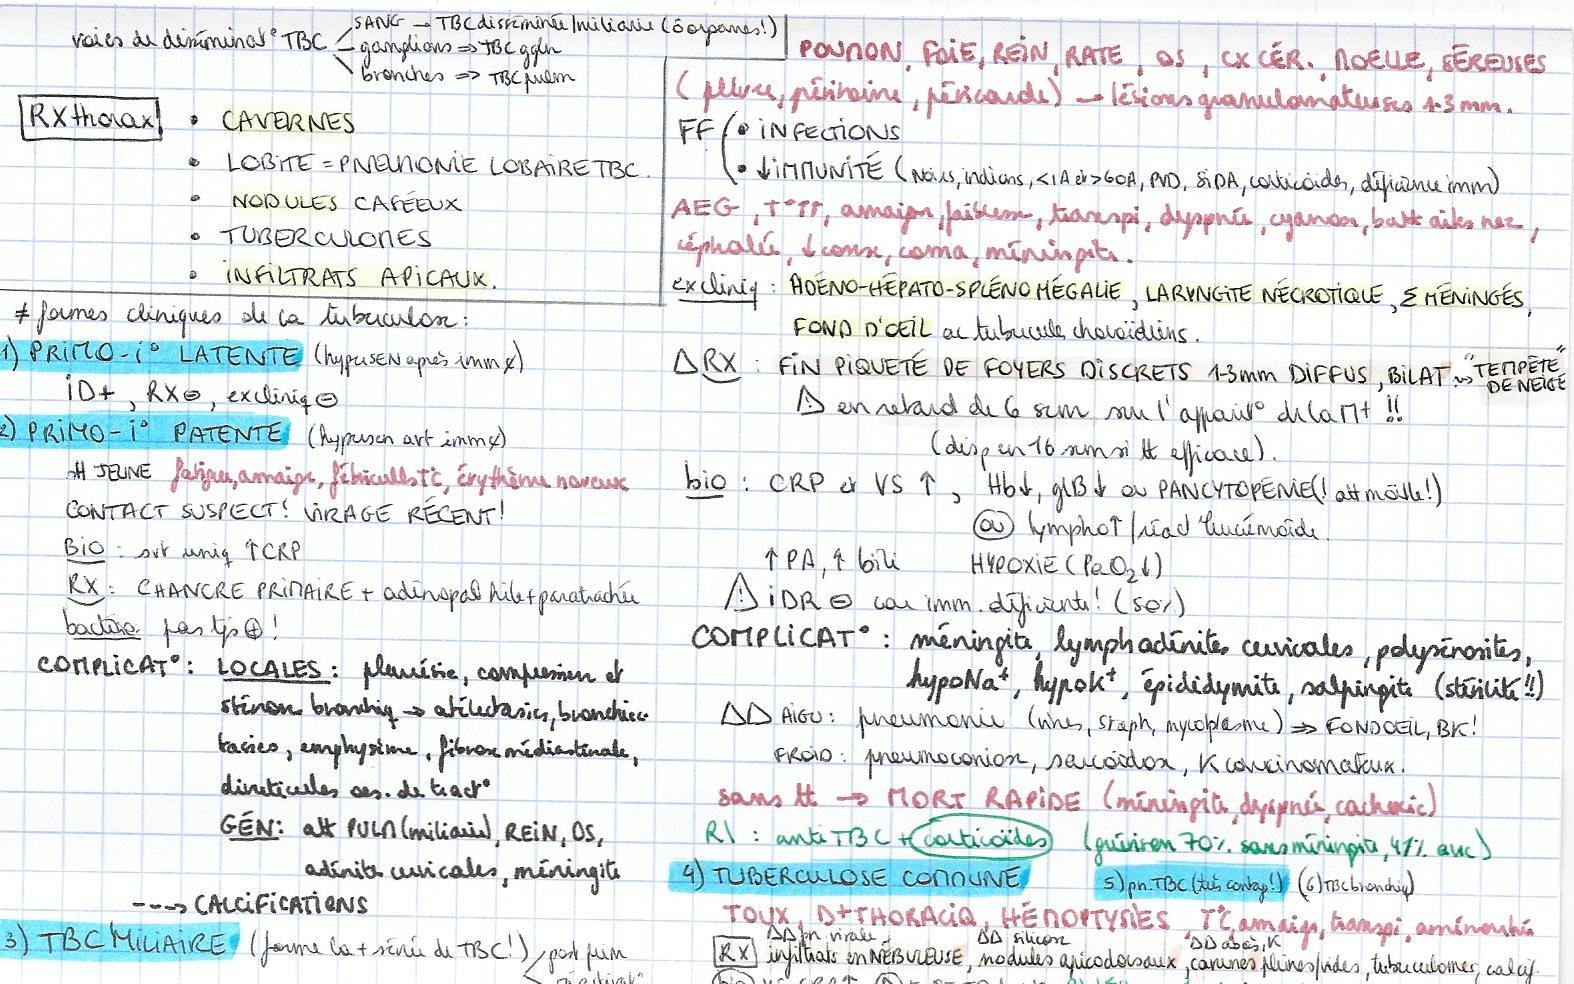 voies de disséminat° TBC
SANG → TBC disséminée/miliaire (ô organes!)
ganglions => TBC ggln
bronches => TBC pulm
RX thorax
• CAVERNES
• LOBITE = PNEUMONIE LOBAIRE TBC.
• NODULES CAFÉEUX
• TUBERCULOMES
• INFILTRATS APICAUX.
≠ formes cliniques de la tuberculose :
1) PRIMO-i° LATENTE (hypersen après imm
iD+, RX⊖, ex cliniq ⊖
2) PRIMO-i° PATENTE (hypersen avt imm
JEUNE fatigue, amaigr, fébricules T°C, érythème noueux
CONTACT SUSPECT! VIRAGE RÉCENT!
Bio : svt uniq ↑CRP
RX : CHANCRE PRIMAIRE + adénopat hile + paratrachée
bactério pas tjs ⊕!
COMPLICAT° : LOCALES : pleurésie, compression et
sténose bronchiq → atélectasies, bronchiec-
tasies, emphysème, fibrose médiastinale,
diverticules oes. de tract°
GÉN : att PULM (miliaire), REIN, OS,
adénite cervicales, méningite
---→ CALCIFICATIONS
3) TBC MILIAIRE (forme la + sévère de TBC!) post prim
POUMON, FOIE, REIN, RATE, OS, CX CÉR., MOELLE, SÉREUSES
(plèvre, péritoine, péricarde) → lésions granulomateuses 1-3 mm.
FF • INFECTIONS
• ↓IMMUNITÉ (Noirs, indiens, <1A et >60A, PVD, SIDA, corticoïdes, déficience imm)
AEG, T°↑↑, amaigr, faiblesse, transpi, dyspnée, cyanose, batt ailes nez,
céphalée, ↓consc, coma, méningite.
ex cliniq : ADÉNO-HÉPATO-SPLÉNOMÉGALIE, LARYNGITE NÉCROTIQUE, Σ MÉNINGÉS,
FOND D'OEIL ac tubercule choroïdiens.
△ RX : FIN PIQUETÉ DE FOYERS DISCRETS 1-3mm DIFFUS, BILAT ~> "TEMPÊTE DE NEIGE"
⚠ en retard de 6 sem sur l'apparit° de la M+ !!
(disp en 16 sem si tt efficace).
bio : CRP et VS ↑, Hb↓, glB↓ ou PANCYTOPÉNIE (! att moelle!)
(ou) lympho↑/réact° leucémoïde.
↑PA, ↑ bili HYPOXIE (PaO2↓)
⚠ iDR ⊖ car imm. déficiente! (50%)
COMPLICAT° : méningite, lymphadénites cervicales, polysérosites,
hypoNa+, hypoK+, épididymite, salpingite (stérilité!!)
△△ AIGU : pneumonie (virus, staph, mycoplasme) => FOND OEIL, BK!
FROID : pneumoconiose, sarcoïdose, K carcinomateux.
sans tt → MORT RAPIDE (méningite, dyspnée, cachexie)
R/ : anti TBC + corticoïdes (guérison 70% sans méningite, 41% avec)
4) TUBERCULOSE COMMUNE 5) pn. TBC (très contag!) (6) TBC bronchiq)
TOUX, D+ THORACIQ, HÉMOPTYSIES T°C, amaigr, transpi, aménorrhée
△△ pn virale △△ silicose △△ abcès, K
RX infiltrats en NÉBULEUSE, nodules apicodorsaux, cavernes pleines/vides, tuberculomes, calcif.
bio VS CRP↑